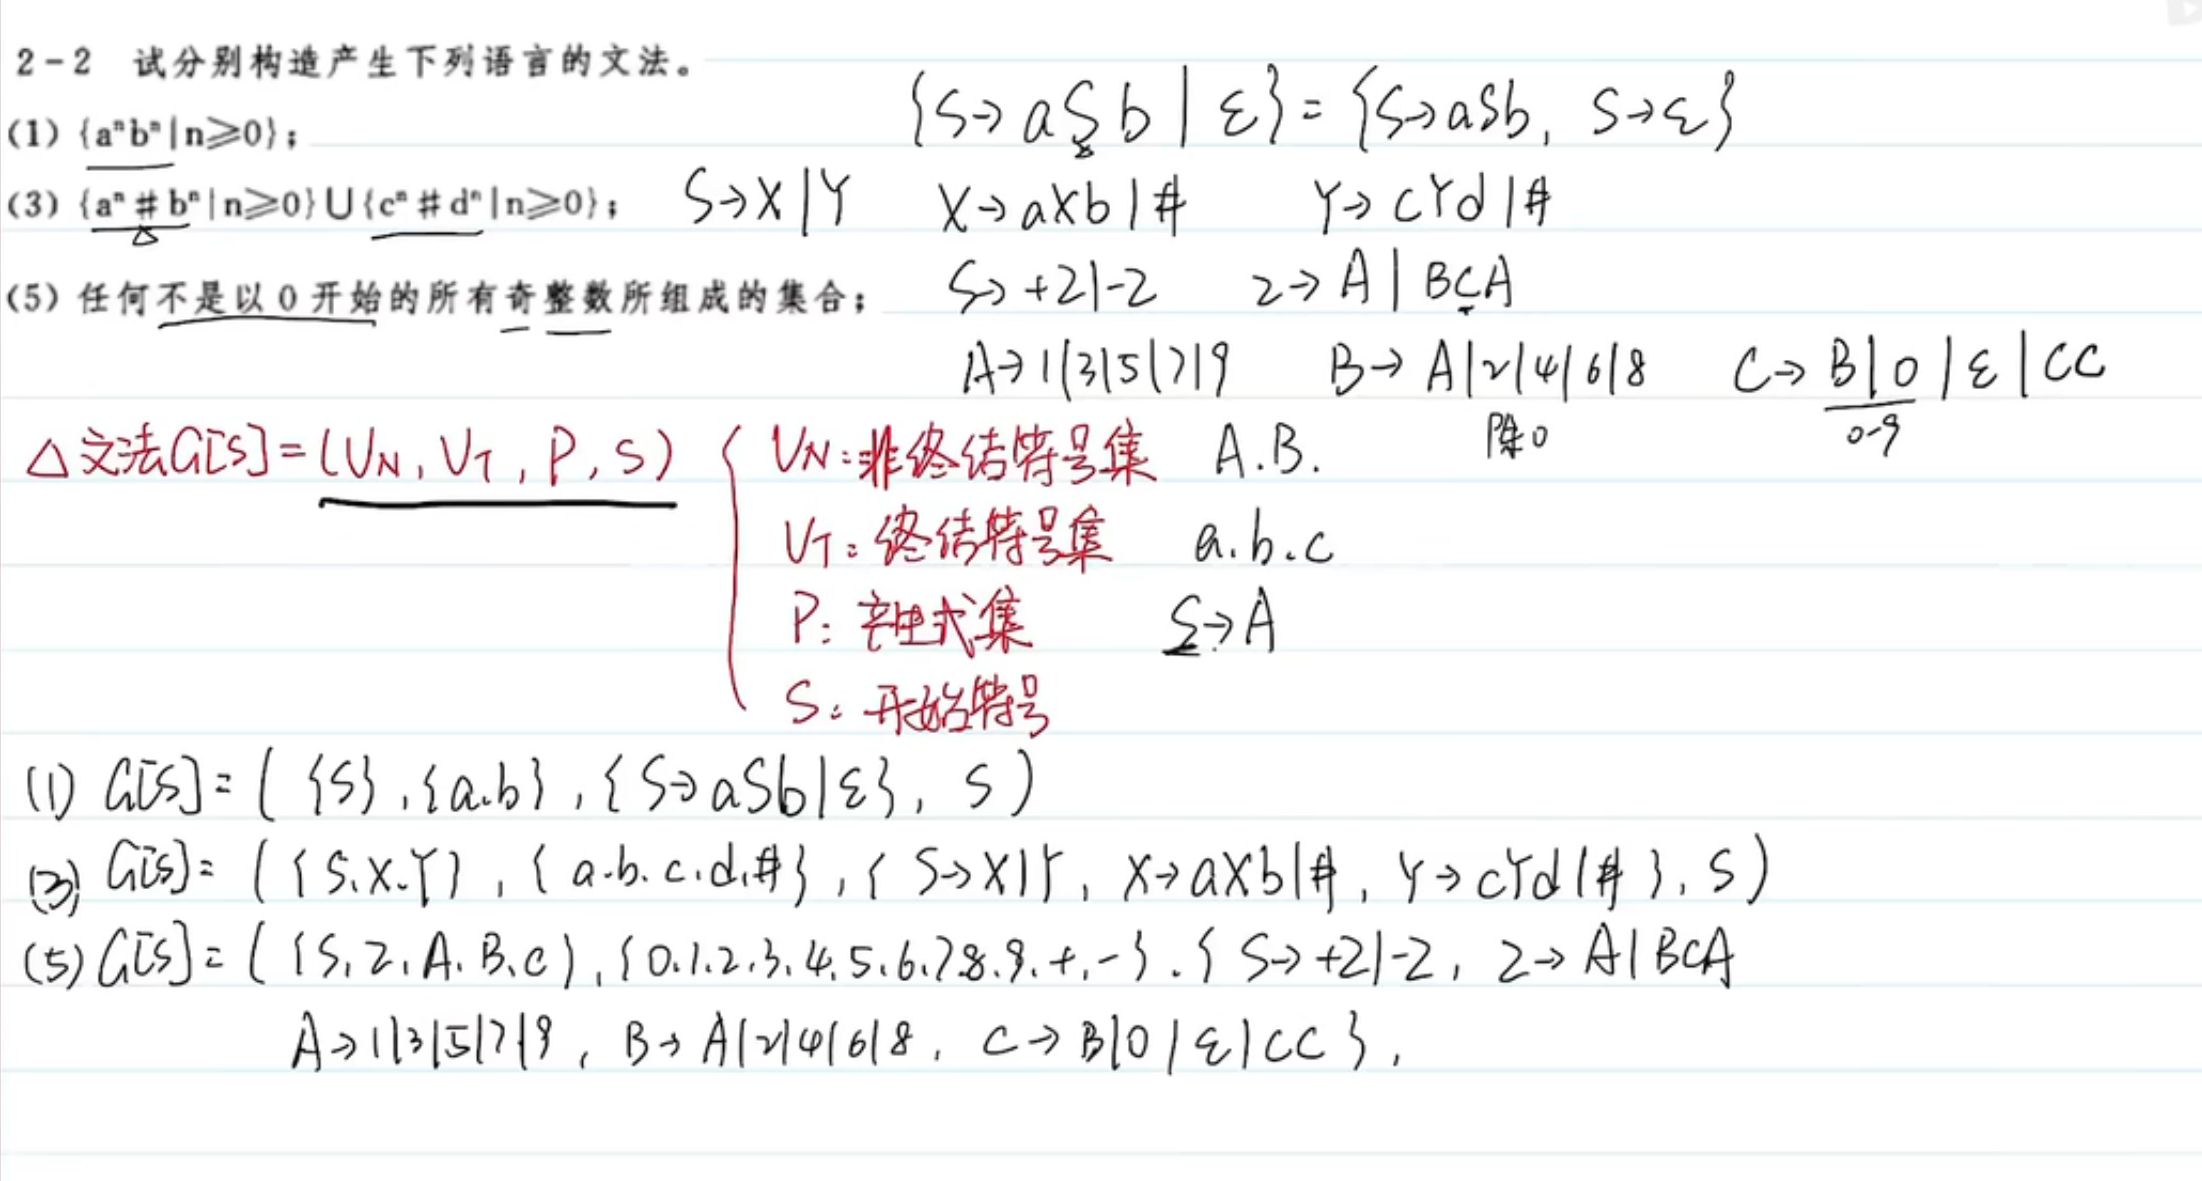 2-2 试分别构造产生下列语言的文法。
(1) {aⁿbⁿ|n≥0};
{S→aSb|ε}={S→aSb, S→ε}
(3) {aⁿ#bⁿ|n≥0}∪{cⁿ#dⁿ|n≥0}; S→X|Y X→aXb|# Y→cYd|#
(5) 任何不是以0开始的所有奇整数所组成的集合; S→+Z|-Z Z→A|BCA
A→1|3|5|7|9 B→A|2|4|6|8 C→B|0|ε|CC
除0 0-9
△文法G[S]=(VN, VT, P, S)
VN:非终结符号集 A.B.
VT:终结符号集 a.b.c
P:产生式集 S→A
S:开始符号
(1) G[S]=({S},{a.b},{S→aSb|ε}, S)
(3) G[S]=({S.X.Y},{a.b.c.d.#},{S→X|Y, X→aXb|#, Y→cYd|#}, S)
(5) G[S]=({S,Z,A.B.C},{0.1.2.3.4.5.6.7.8.9.+.-}.{S→+Z|-Z, Z→A|BCA
A→1|3|5|7|9, B→A|2|4|6|8, C→B|0|ε|CC},